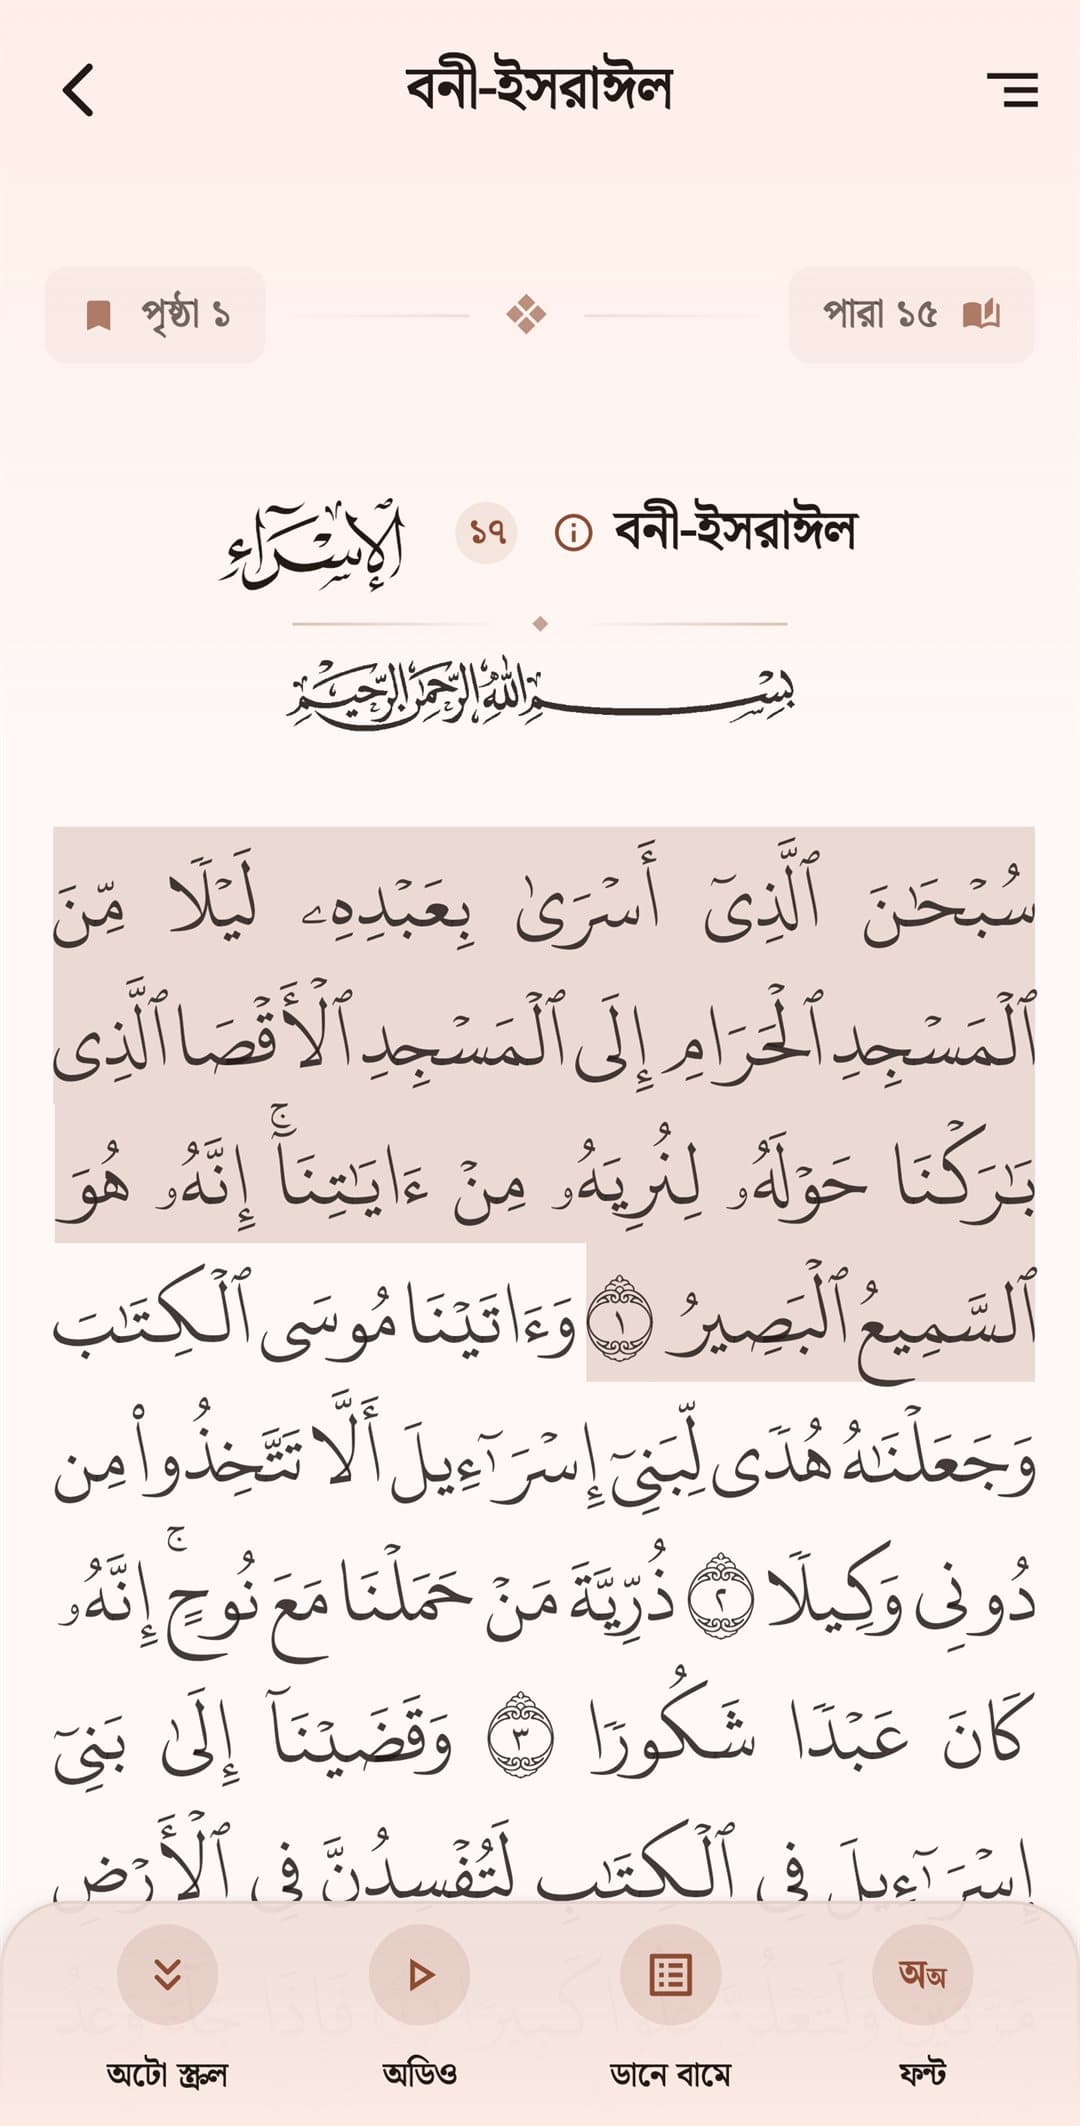 বনী-ইসরাঈল
পৃষ্ঠা ১
পারা ১৫
الإِسْرَاءِ ১৭ বনী-ইসরাঈল
بِسْمِ اللَّهِ الرَّحْمَٰنِ الرَّحِيمِ
سُبْحَٰنَ ٱلَّذِىٓ أَسْرَىٰ بِعَبْدِهِۦ لَيْلًا مِّنَ
ٱلْمَسْجِدِ ٱلْحَرَامِ إِلَى ٱلْمَسْجِدِ ٱلْأَقْصَا ٱلَّذِى
بَٰرَكْنَا حَوْلَهُۥ لِنُرِيَهُۥ مِنْ ءَايَٰتِنَآ ۚ إِنَّهُۥ هُوَ
ٱلسَّمِيعُ ٱلْبَصِيرُ ١ وَءَاتَيْنَا مُوسَى ٱلْكِتَٰبَ
وَجَعَلْنَٰهُ هُدًى لِّبَنِىٓ إِسْرَٰٓءِيلَ أَلَّا تَتَّخِذُوا۟ مِن
دُونِى وَكِيلًا ٢ ذُرِّيَّةَ مَنْ حَمَلْنَا مَعَ نُوحٍ ۚ إِنَّهُۥ
كَانَ عَبْدًا شَكُورًا ٣ وَقَضَيْنَآ إِلَىٰ بَنِىٓ
إِسْرَٰٓءِيلَ فِى ٱلْكِتَٰبِ لَتُفْسِدُنَّ فِى ٱلْأَرْضِ
অটো স্ক্রল
অডিও
ডানে বামে
অঅ
ফন্ট